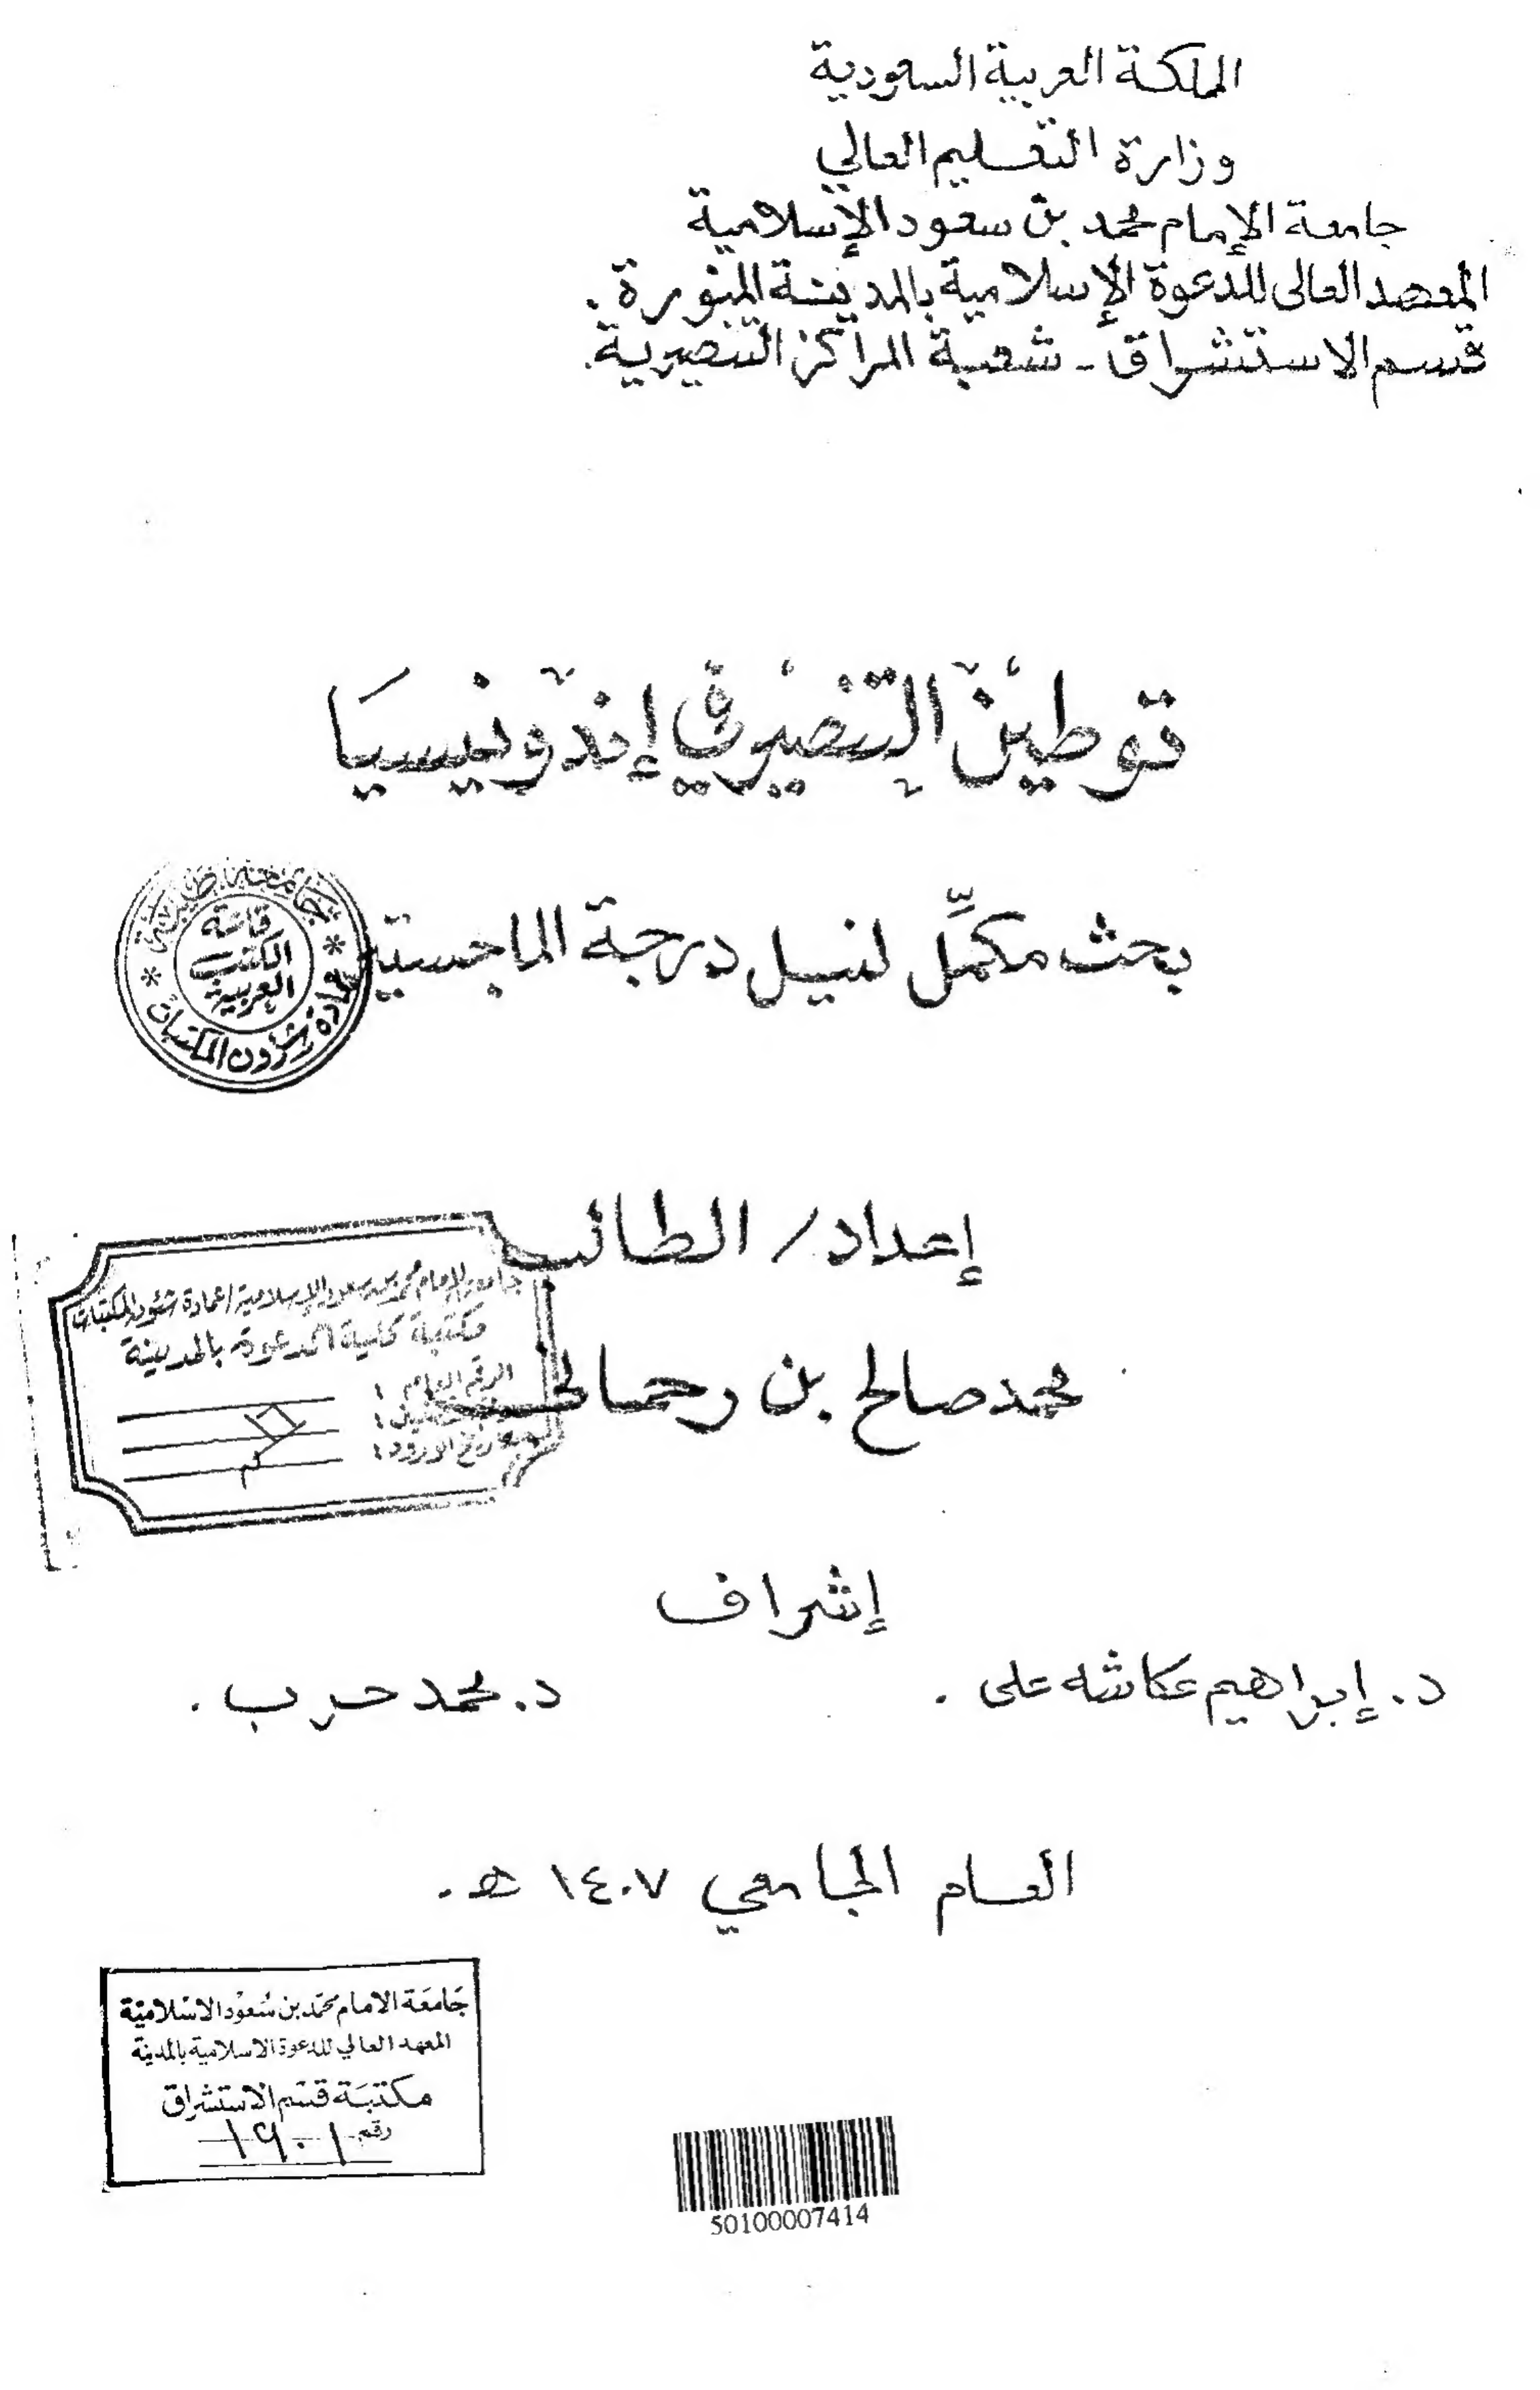 المملكة العربية السعودية
وزارة التعليم العالي
جامعة الإمام محمد بن سعود الإسلامية
المعهد العالى للدعوة الإسلامية بالمدينة المنورة .
قسم الاستشراق - شعبة المراكز التنصيرية.
توطين التنصير في إندونيسيا
بحث مكمّل لنيل درجة الماجستير
قاعة
الكتب
العربية
عمادة شؤون المكتبات
إعداد / الطالب
جامعة الإمام محمد بن سعود الإسلامية / عمادة شئون المكتبات
مكتبة كلية الدعوة بالمدينة
الرقم العام :
تاريخ الورود :
محمد صالح بن رحمالي
إشراف
د. إبراهيم عكاشه على .
د. محمد حرب .
العام الجامعي ١٤٠٧ هـ .
جَامعَة الامام محمّد بن سُعوُد الاسْلاميّة
المعهد العالي للدعوة الاسلامية بالمدينة
مكتبَة قسْم الاستشراق
رقم ١٩٠١
50100007414